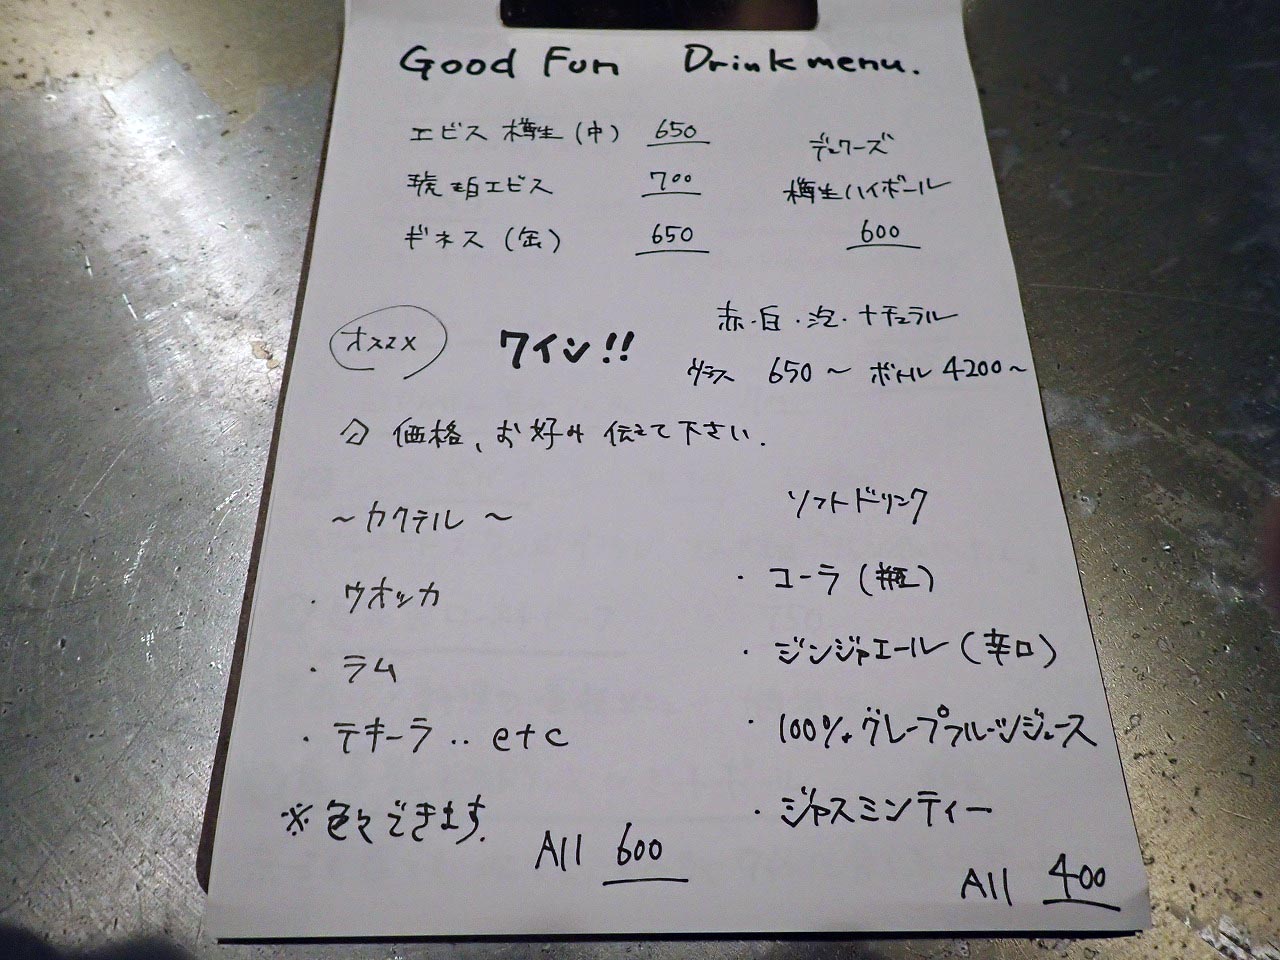 Good Fun Drink menu.
エビス 樽生(中) 650
琥珀エビス 700
ギネス (缶) 650
デュワーズ
樽生ハイボール
600
オススメ
ワイン!!
赤・白・泡・ナチュラル
グラス 650〜 ボトル 4200〜
価格、お好み伝えて下さい.
〜カクテル〜
・ウオッカ
・ラム
・テキーラ‥etc
※色々できます.
All 600
ソフトドリンク
・コーラ(瓶)
・ジンジャエール(辛口)
・100%グレープフルーツジュース
・ジャスミンティー
All 400